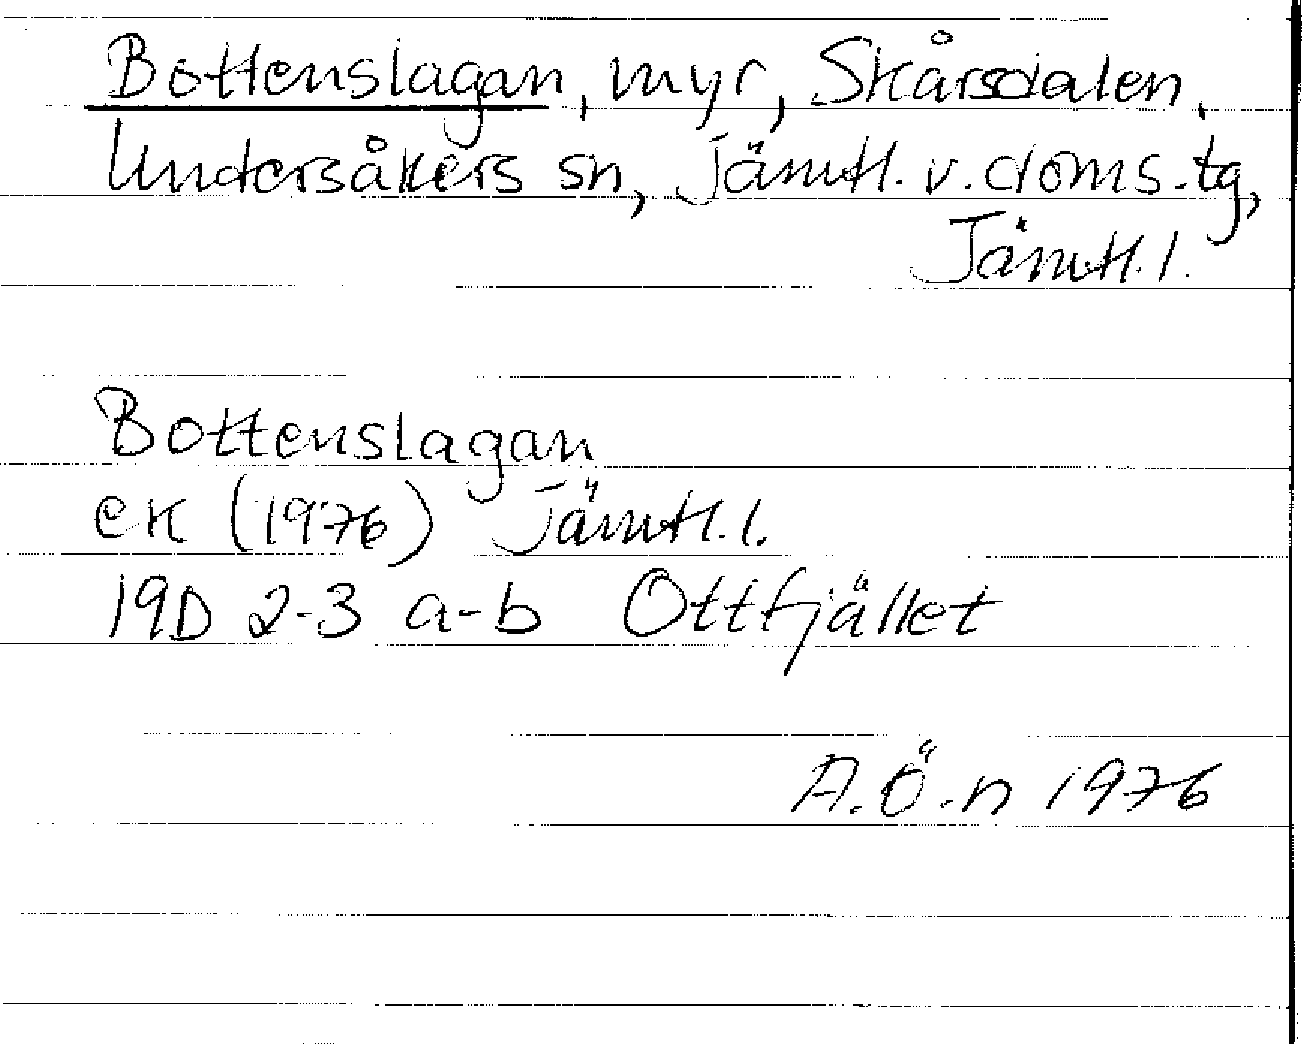 Bottenslagan, myr, Skårsdalen,
Undersåkers sn, Jämtl. v. doms. tg,
Jämtl. l.
Bottenslagan
ek (1976) Jämtl. l.
19D 2-3 a-b Ottfjället
A.Ö.n 1976